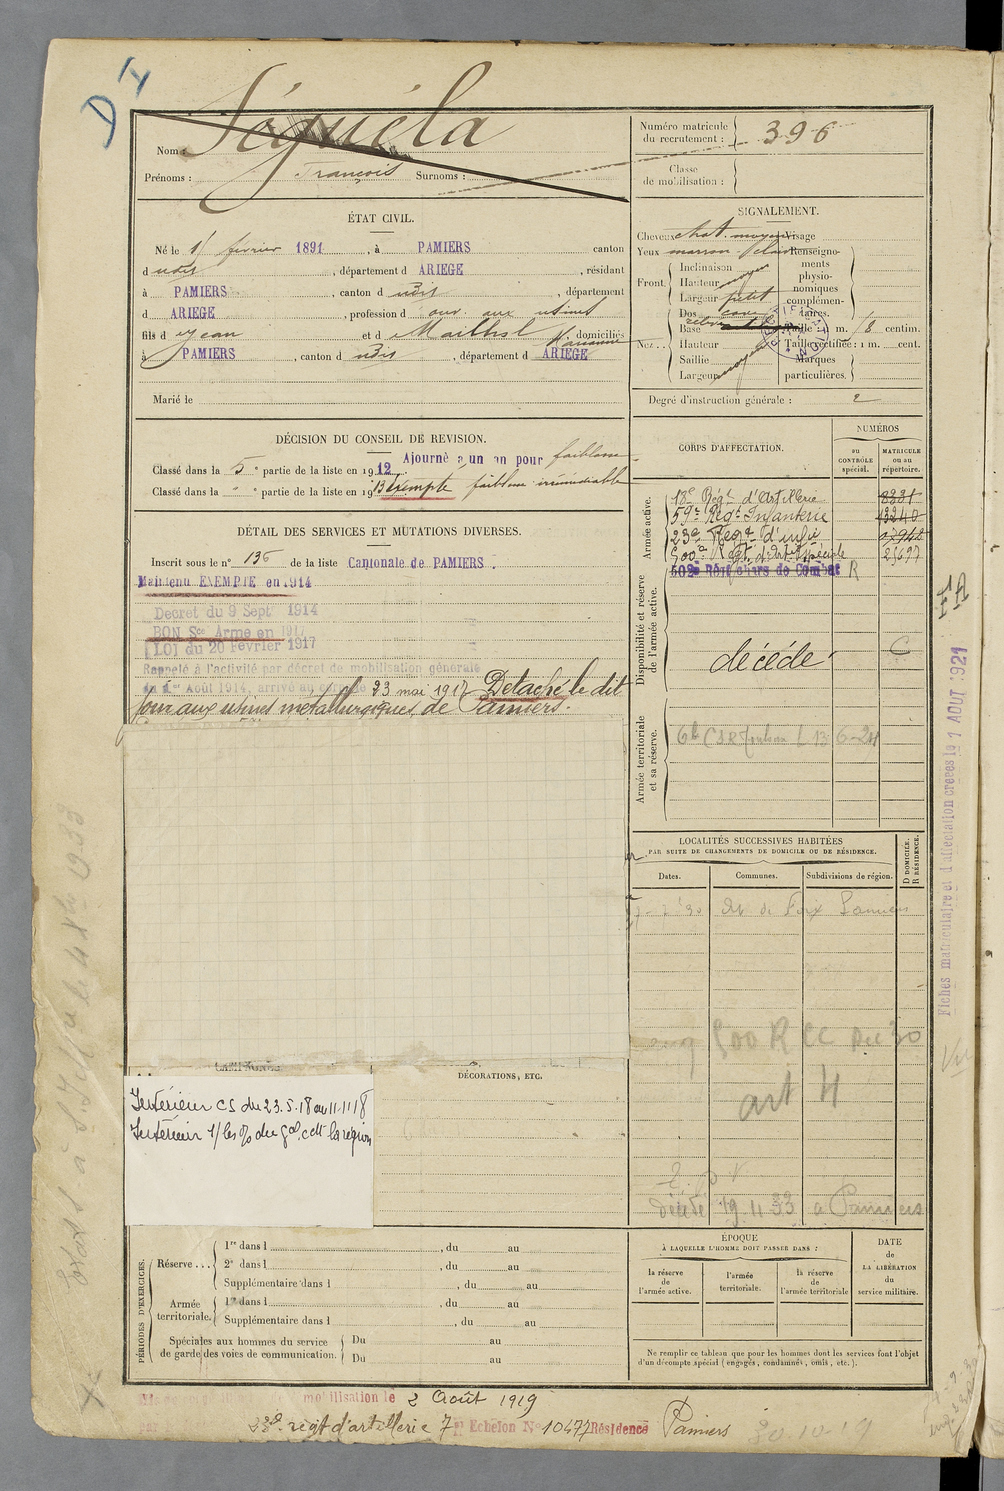 D
Nom : Séguéla
Prénoms : François Surnoms :
Numéro matricule du recrutement : 396
Classe de mobilisation :
ÉTAT CIVIL.
Né le février 1891, à PAMIERS canton
d udit, département d ARIEGE, résidant
à PAMIERS, canton d udit, département
d ARIEGE, profession d our. aux usines
fils d Jean et d domiciliés
à PAMIERS, canton d udit, département d ARIEGE
Marié le
SIGNALEMENT.
Cheveux chat. moyen Visage
Yeux marron clair
Front. Inclinaison
Hauteur moyen
Largeur petit
Nez. Dos cave
Base
Hauteur
Saillie
Largeur moyen
Renseignements physionomiques complémentaires.
Taille 1 m. centim.
Taille rectifiée : 1 m. cent.
Marques particulières.
Degré d'instruction générale : 2
DÉCISION DU CONSEIL DE REVISION.
Classé dans la 5e partie de la liste en 1912 Ajourné a un an pour faiblesse
Classé dans la " e partie de la liste en 1913 exempté faiblesse irrémédiable
DÉTAIL DES SERVICES ET MUTATIONS DIVERSES.
Inscrit sous le n° 136 de la liste Cantonale de PAMIERS.
Maintenu EXEMPTE en 1914
Decret du 9 Sept 1914
BON Sce Armé en 1917
LOI du 20 Février 1917
Rappelé à l'activité par décret de mobilisation générale
du 1er Août 1914, arrivé au corps le 23 mai 1917 Détaché le dit
jour aux usines metallurgiques de Pamiers.
CORPS D'AFFECTATION.
NUMÉROS
au CONTRÔLE spécial.
MATRICULE ou au répertoire.
Armée active.
18e Régt d'Artillerie 8331
59e Régt Infanterie 13240
23e Regt d'infie
500e Regt d'Artie spéciale 25697
502e Régt chars de Combat R
Disponibilité et réserve de l'armée active.
décédé
C
Armée territoriale et sa réserve.
LOCALITÉS SUCCESSIVES HABITÉES
PAR SUITE DE CHANGEMENTS DE DOMICILE OU DE RÉSIDENCE.
Dates. Communes. Subdivisions de région. D DOMICILE. R RÉSIDENCE.
de Foix Pamiers
500 R CC Dec 30
art 4
décédé 19.4.33 a Pamiers
CAMPAGNES
DÉCORATIONS, ETC.
Intérieur CS du 23.5.18 au 11.11.18
PÉRIODES D'EXERCICES.
Réserve...
1re dans l , du au
2e dans l , du au
Supplémentaire dans l , du au
Armée territoriale.
1re dans l , du au
Supplémentaire dans l , du au
Spéciales aux hommes du service de garde des voies de communication.
Du au
Du au
ÉPOQUE
À LAQUELLE L'HOMME DOIT PASSER DANS :
la réserve de l'armée active.
l'armée territoriale.
la réserve de l'armée territoriale
DATE de LA LIBÉRATION du service militaire.
Ne remplir ce tableau que pour les hommes dont les services font l'objet
d'un décompte spécial (engagés, condamnés, omis, etc.).
mobilisation le 2 Août 1919
23e régt d'artillerie 7e Echelon No 10477 Résidence Pamiers
30-10-19
FA
Fiches matriculaire et d'affectation créées le 1 AOUT 1921